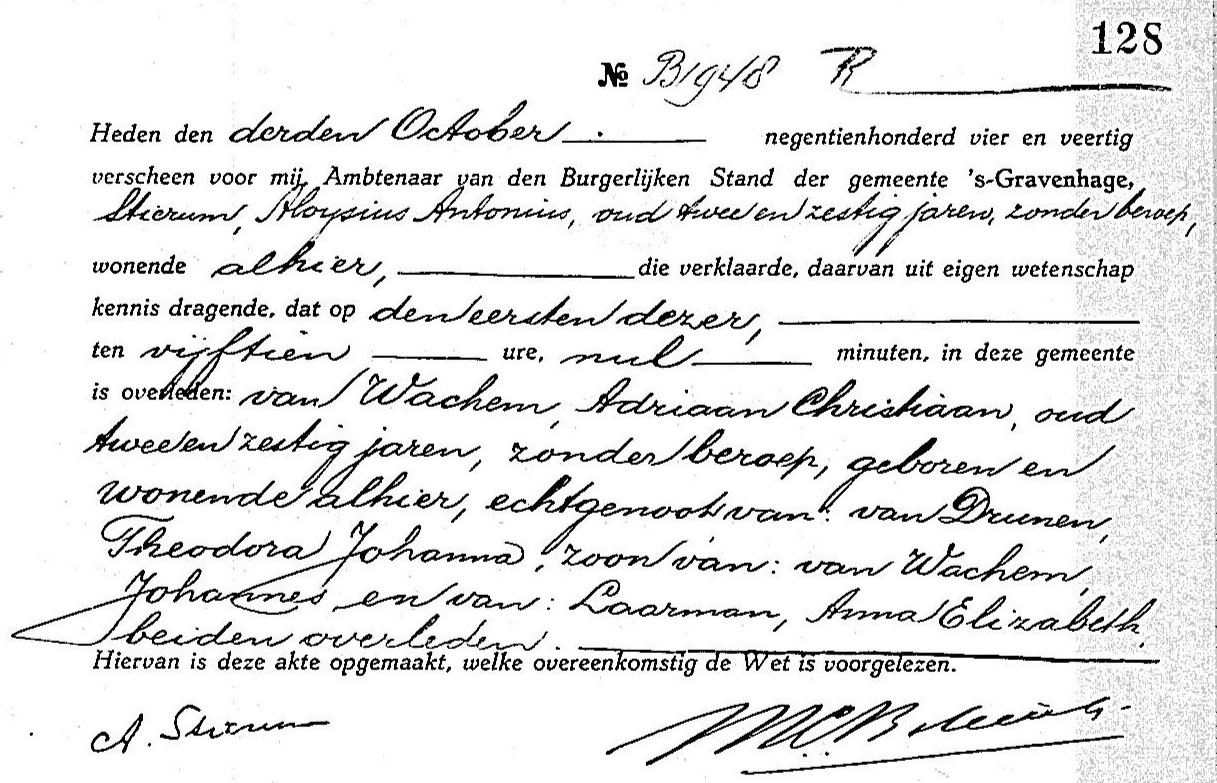 128
№ B1948 R
Heden den derden October . negentienhonderd vier en veertig
verscheen voor mij, Ambtenaar van den Burgerlijken Stand der gemeente 's-Gravenhage,
Stierum, Aloysius Antonius, oud twee en zestig jaren, zonder beroep,
wonende alhier, die verklaarde, daarvan uit eigen wetenschap
kennis dragende, dat op den eersten dezer,
ten vijftien ure, nul minuten, in deze gemeente
is overleden: van Wachem, Adriaan Christiaan, oud
twee en zestig jaren, zonder beroep, geboren en
wonende alhier, echtgenoot van: van Drunen,
Theodora Johanna, zoon van: van Wachem,
Johannes en van: Laarman, Anna Elizabeth,
beiden overleden.
Hiervan is deze akte opgemaakt, welke overeenkomstig de Wet is voorgelezen.
A. Stierum